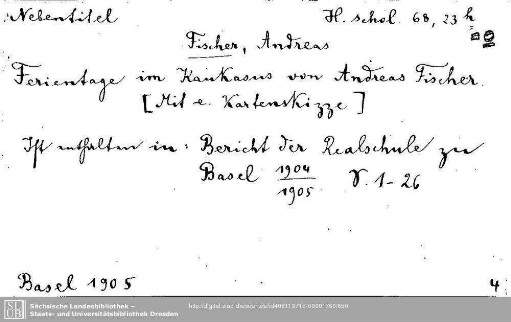 Nebentitel H. schol. 68, 23 h
Fischer, Andreas
Ferientage im Kaukasus von Andreas Fischer.
[Mit e. Kartenskizze]
Ist enthalten in: Bericht der Realschule zu
Basel 1904/1905 S. 1-26
Basel 1905 4
Sächsische Landesbibliothek –
Staats- und Universitätsbibliothek Dresden